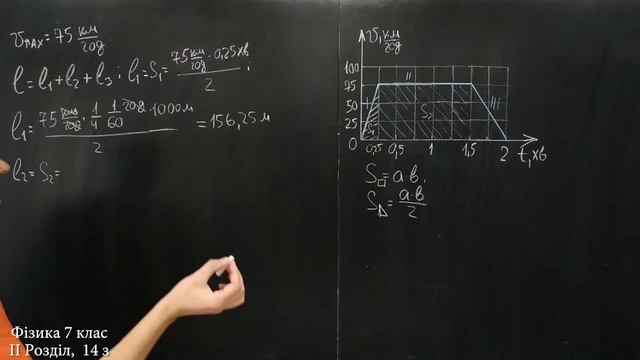 υmax = 75 км/год
l = l₁ + l₂ + l₃; l₁ = S₁ = (75 км/год · 0,25 хв)/2;
l₁ = (75 км/год · 1/4 · 1/60 год · 1000 м)/2 = 156,25 м
l₂ = S₂ =
υ, км/год
100
75
50
25
0
0,25 0,5 1 1,5 2 t, хв
I
II
III
S₂
S□ = a·в;
S△ = a·в/2
Фізика 7 клас
ІІ Розділ, 14 з